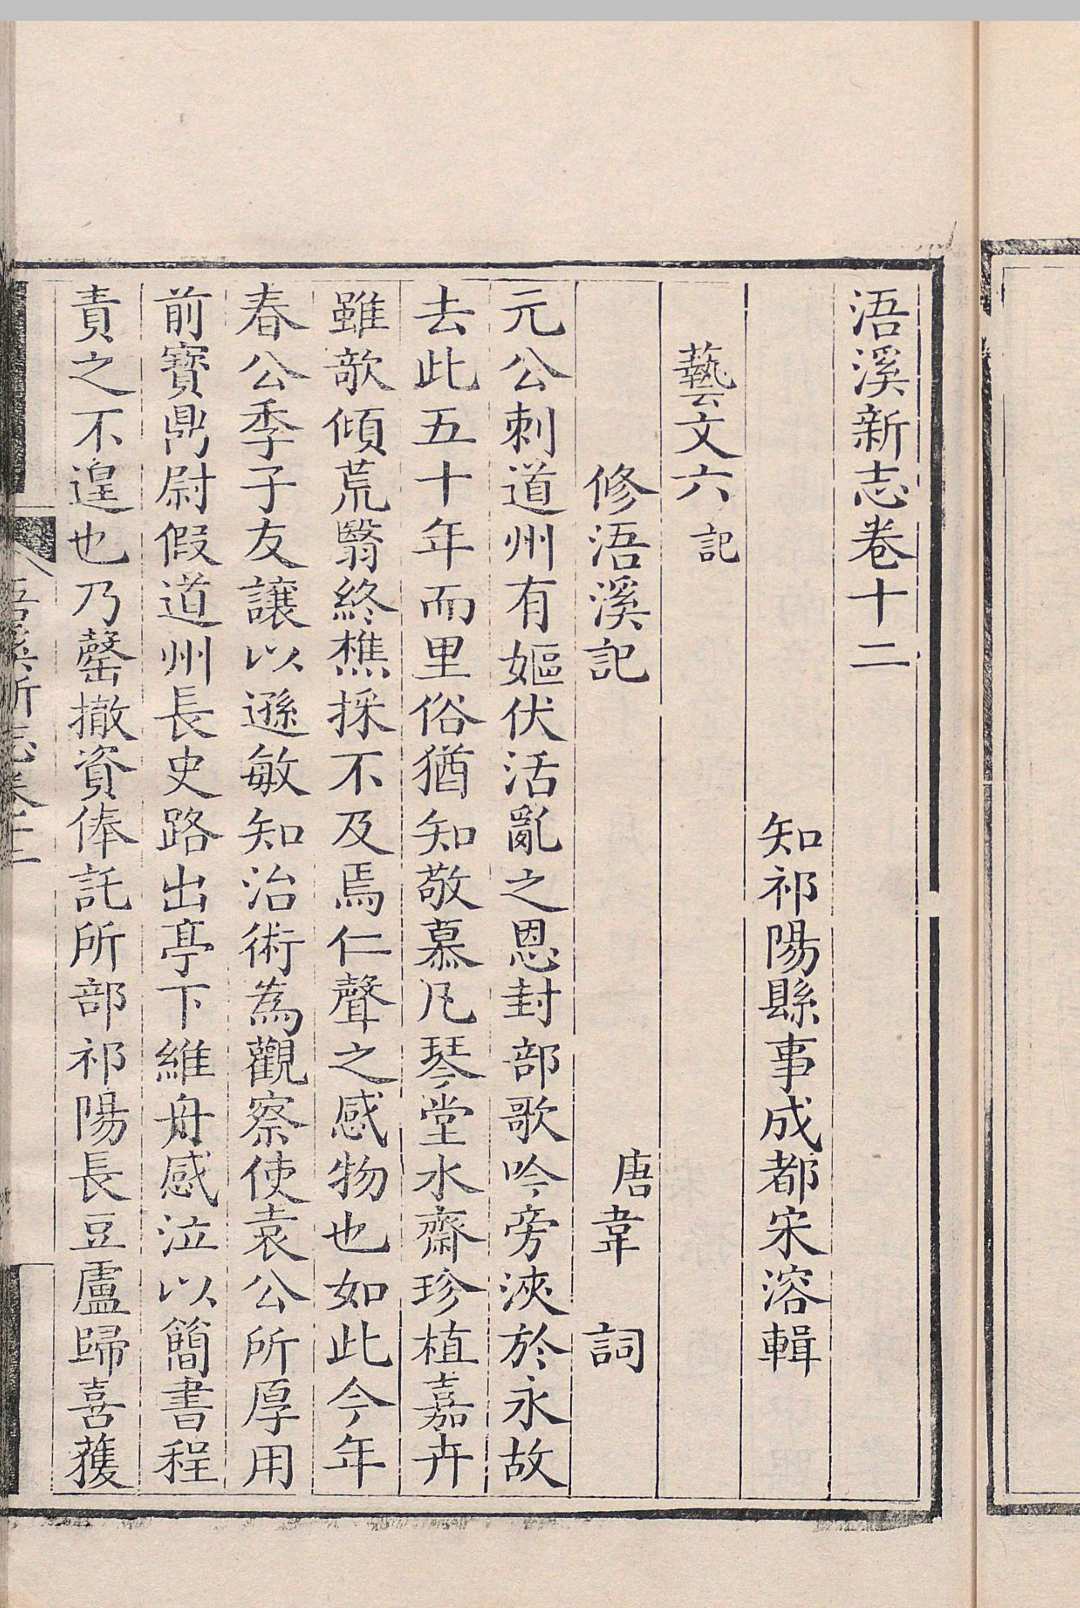 浯溪新志卷十二
知祁陽縣事成都宋溶輯
藝文六 記
修浯溪記 唐韋 詞
元公刺道州有嫗伏活亂之恩封部歌吟旁浹於永故
去此五十年而里俗猶知敬慕凡琴堂水齋珍植嘉卉
雖欹傾荒翳終樵採不及焉仁聲之感物也如此今年
春公季子友讓以遜敏知治術為觀察使袁公所厚用
前寶鼎尉假道州長史路出亭下維舟感泣以簡書程
責之不遑也乃罄撤資俸託所部祁陽長豆盧歸喜獲
浯溪新志卷十二